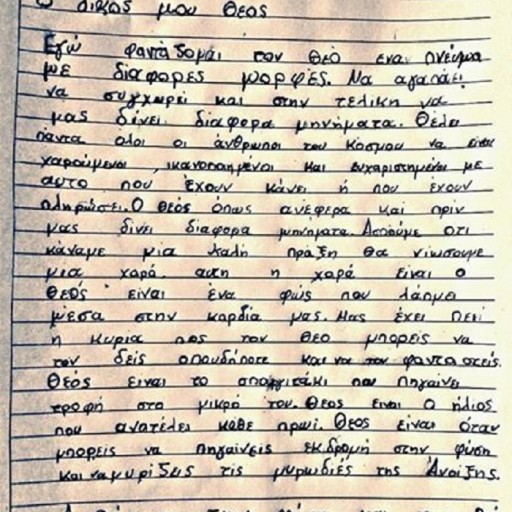 δικός μου Θεός
Εγώ φαντάζομαι τον Θεό ενα πνέυμα
με διάφορες μορφές. Να αγαπάει
να συγχωρεί και στην τελική να
μας δίνει διάφορα μηνήματα. Θέλει
πάντα όλοι οι άνθρωποι του κόσμου να είναι
χαρούμενοι, ικανοποιημένοι και ευχαριστημένοι με
αυτο που έχουν κάνει ή που έχουν
πληρώσει. Ο Θεός όπως ανέφερα και πριν
μας δίνει διάφορα μηνήματα. Ασπούμε οτι
κάναμε μία καλή πράξη θα νιώσουμε
μια χαρά. αυτη η χαρά είναι ο
Θεός είναι ένα φώς που λάμπει
μέσα στην καρδιά μας. Μας έχει πεί
η κυρία πος τον Θεο μπορείς να
τον δείς οπουδήποτε και να τον φανταστείς.
Θεός ειναι το σπουργιτάκι που πηγαίνει
τροφή στο μικρό του. Θεος ειναι ο ήλιος
που ανατέλει κάθε πρωί. Θεος είναι όταν
μπορείς να πηγαίνεις εκδρομή στην φύση
και να μυρίζεις τις μυρωδιές της Άνοιξης.